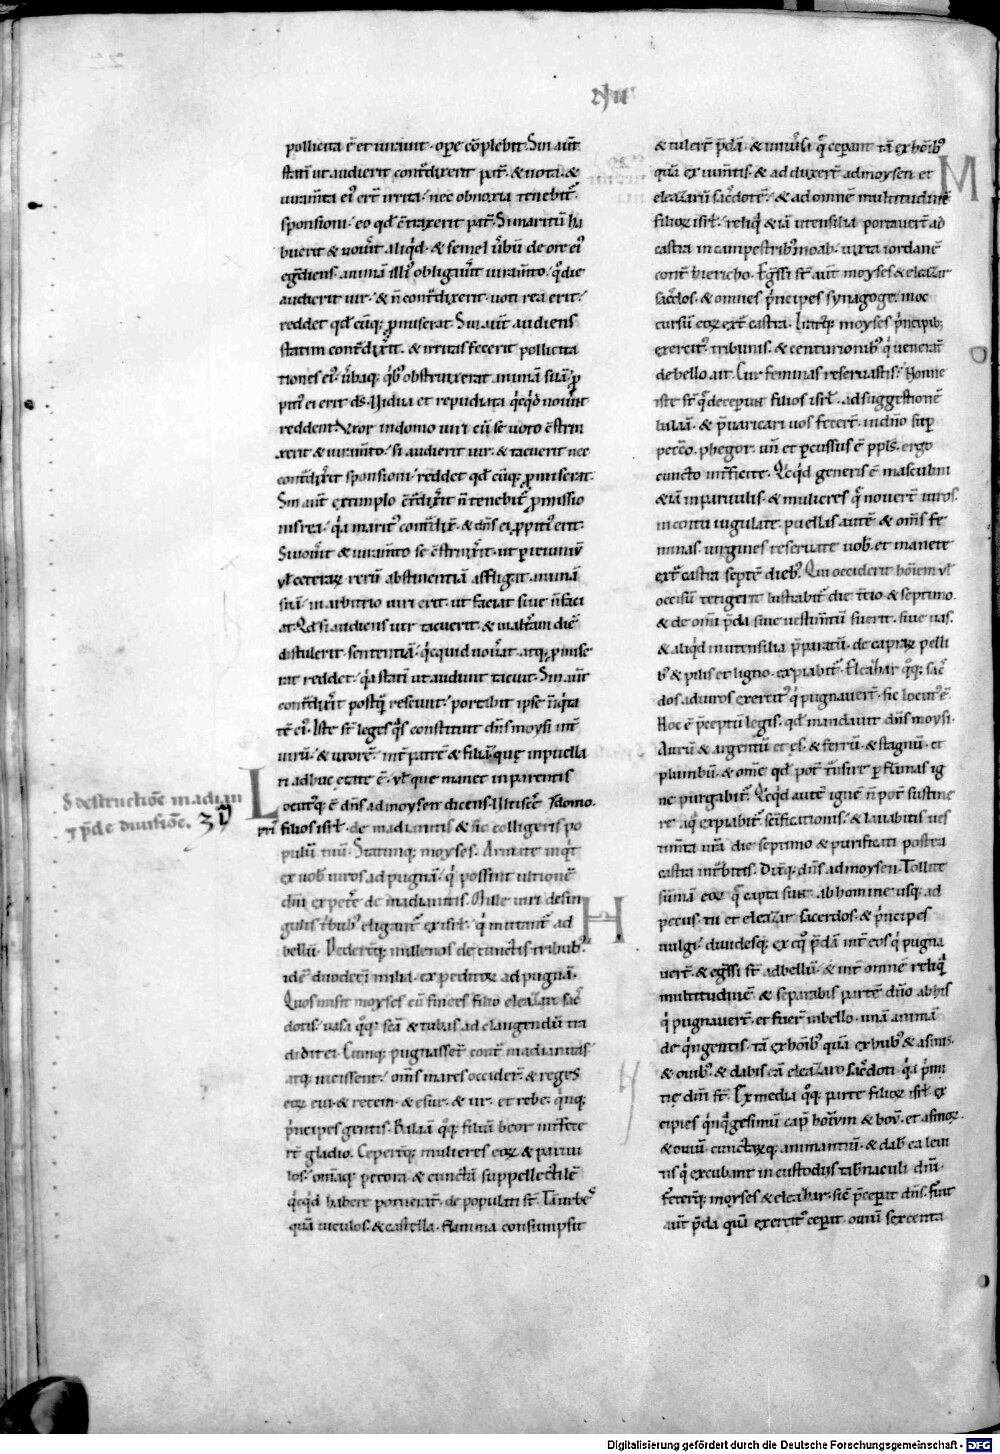 NU
pollicita ē et iuravit · ope cōplebit. Sin aūt
statī ut audierit contdixerit pat̄ · & vota · &
iuramta ei⁹ ert̄ irrita · nec obnoxia tenebit̄
sponsioni · eo qd̄ c̄tradixerit pat̄. Si maritū ha
buerit & vov̄it aliqd · & semel v̄bū de ore ei⁹
egdiens animā illi⁹ obligav̄it iuramto · q̄ die
audierit vir · & n̄ contdixerit · voti rea erit ·
reddet qd̄ cūq; p̄miserat. Sin aūt audiens
statim contdix̄it · & irritas fecerit pollicita
tiones ei⁹ · v̄baq; qb⁹ obstrinxerat animā suā · p̄
piti⁹ ei erit dn̄s. Vidua et repudiata qcqd vov̄int
reddent. Uxor in domo viri cū se voto c̄strin
xerit & iuramto · si audierit vir · & tacuerit nec
contdix̄it sponsioni · reddet qd̄ cūq; p̄miserat.
Sin aūt extimplo c̄tdix̄it n̄ tenebit̄ p̄missio
nis rea · qa marit⁹ contdix̄ · & dn̄s ei p̄piti⁹ erit.
Si vov̄it & iuramto se c̄strinx̄it · ut p ieiuniū
vl̄ ceteraꝝ rerū abstinentiā affligat animā
suā · in arbitrio viri erit · ut faciat sive n̄ faci
at. Qd̄ si audiens vir tacuerit · & in alt̄am diē
distulerit sententiā · qcquid vov̄at atq; p̄mise
rat reddet · qa statī ut audivit tacuit. Sin aūt
contdix̄it postq̄ rescivit · portabit ipse iniqta
tē ei⁹. Iste st̄ leges qs constituit dn̄s moysi int̄
virū · & uxorē · int̄ patrē & filiā que in puella
ri adhuc etate ē · vl̄ que manet in parentis
Locutusq; ē dn̄s ad moysen dicens. Ulciscē domo.
pri⁹ filios isrl̄ · de madianitis & sic colligeris po
d̄ destructiōe madian
⁊ p̄de divisiōe.
pulū tuū. Statimq; moyses. Armate inqt
ex vob viros ad pugnā · q possint ultionē
dn̄i expete de madianitis. Mille viri de sin
gulis tribub⁹ eligant̄ ex isrl̄ · q mittant̄ ad
bellū. Dedertq; millenos de cunctis tribub⁹ ·
id ē duodecī milia · expeditoꝝ ad pugnā ·
Quos misit moyses cū finees filio eleazar sac̄
dotis · vasa qq; scā & tubas ad clangendū tra
didit ei. Cumq; pugnasset̄ cont̄ madianitas
atq; vicissent · om̄s mares occiderт̄ · & reges
eoꝝ evi · & recem · & sur · & ur · et rebe · qnq;
p̄ncipes gentis. Balaā qq; filiū beor int̄fece
rt̄ gladio. Ceperтq; mulieres eoꝝ & parvu
los · om̄iaq; pecora · & cunctā suppellectilē
qcqd habere potuerant · depopulati st̄. Tā urbes
quā viculos · & castella · flamma consumpsit
& tulert̄ p̄dā · & univsa q̄ ceperant tā ex hoib⁹
quā ex iumtis · & adduxert̄ ad moysen et
eleazarū sac̄dotē · & ad omnē multitudinē
filioꝝ isrl̄ · reliq̄ & iā utensilia portavert̄ ad
castra in campestrib⁹ moab · iuxta iordanē
cont̄ hiericho. Egssi st̄ aūt moyses & eleazar
sac̄dos · & omnes p̄ncipes synagoge · in oc
cursū eoꝝ ext̄ castra. Iratusq; moyses p̄ncipib;
exercit⁹ tribunis · & centurionib⁹ q venerant
de bello ait. Cur feminas reservastis? Nonne
iste st̄ q̄ decepunt filios isrl̄ · ad suggestionē
balaā · & p̄varicari vos fecert̄ · in dn̄o sup
peccō · phegor · un̄ et percussus ē ppls̄ · ergo
cunctos int̄ficite. Qcqd generis ē masculini
& iā in parvulis · & mulieres q̄ novert̄ viros
in coitu iugulate · puellas autē & om̄s fe
minas · virgines reservate vob · et manete
ext̄ castra septē dieb⁹. Qui occiderit hōiem vl̄
occisū tetigerit lustrabit̄ die t̄cio & septimo.
& de om̄i p̄da sive vestim̄tū fuerit · sive vas ·
& aliqd in utensilia p̄paratū · de capraꝝ pelli
b⁹ & pilis et ligno · expiabit̄. Eleazar qq; sac̄
dos ad viros exercit⁹ q pugnavert̄ · sic locut⁹ ē.
Hoc ē p̄ceptū legis · qd̄ mandavit dn̄s moysi ·
Aurū & argentū et es · & ferrū & stagnū · et
plumbū · & om̄e qd̄ pot̄ t̄nsire p flāmas ig
ne purgabit̄. Qcqd autē ignē n̄ pot̄ sustine
re aq̄ expiabit̄ scīficationis · & lavabitis ves
timta v̄ra die septimo & purificati postea
castra int̄bitis. Dixitq; dn̄s ad moysen. Tollite
sūmā eoꝝ q̄ capta sunt · ab homine usq; ad
pecus · tu et eleazar sacerdos · & p̄ncipes
vulgi · dividesq; ex eq̄ p̄dā int̄ eos q pugna
vert̄ · & egssi st̄ ad bellū · & int̄ omnē reliq̄
multitudinē · & separabis partē dn̄o ab his
q pugnavert̄ · et fuert̄ in bello · unā animā
de qngentis · tā ex hoib⁹ quā ex bub⁹ & asinis ·
& ovib⁹ · & dabis eā eleazaro sac̄doti · qa p̄mi
tie dn̄i st̄. Ex media qq; parte filioꝝ isrl̄ ac
cipies qnqgesimū cap̄ hoīvm & boū · et asinoꝝ ·
& oviū · cunctoꝝq; animantiū · & dab ea levi
tis q excubant in custodiis tab̄naculi dn̄i ·
Fecertq; moyses & eleazar · sic̄ p̄ceperat dn̄s. Fuit
aūt p̄da quā exercit⁹ cepit · oviū sexcenta
Digitalisierung gefördert durch die Deutsche Forschungsgemeinschaft - DFG